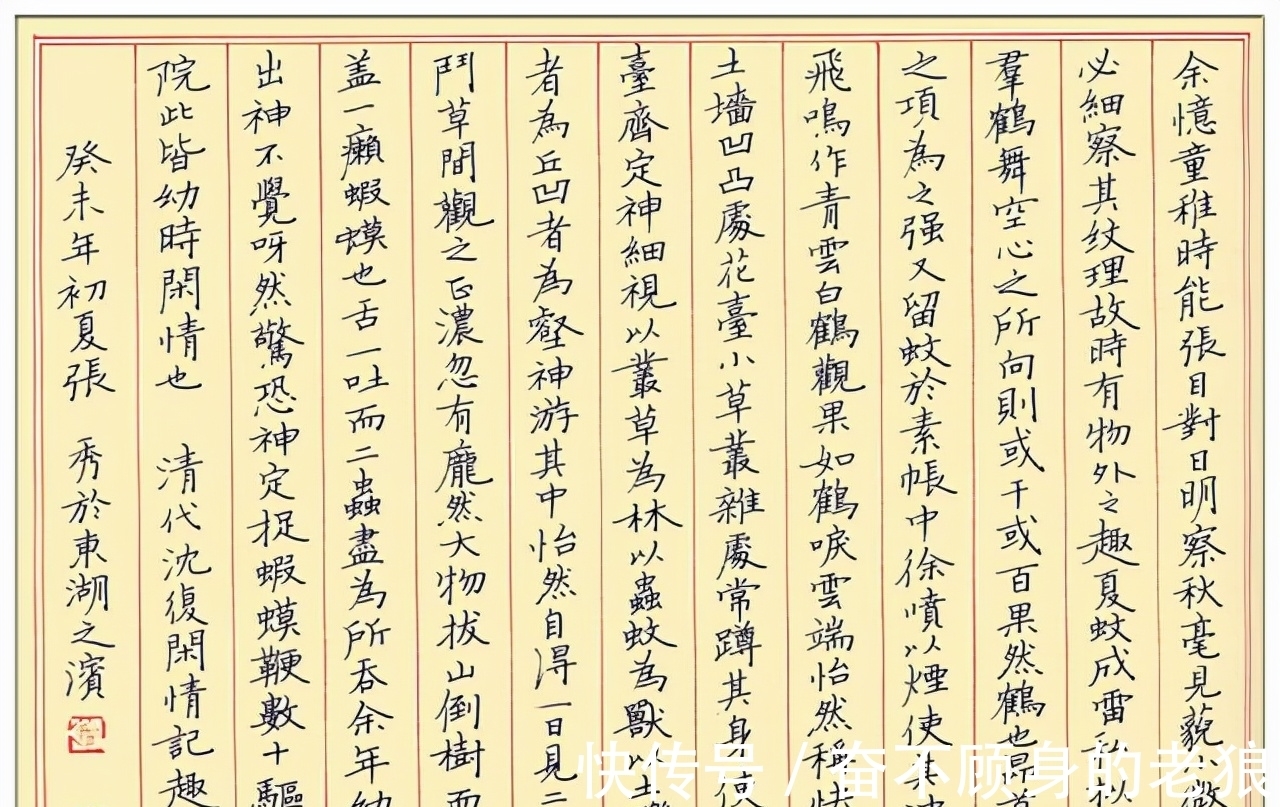 余憶童稚時能張目對日明察秋毫見藐小微
必細察其紋理故時有物外之趣夏蚊成雷私以
羣鶴舞空心之所向則或千或百果然鶴也昂首
之項為之强又留蚊於素帳中徐噴以煙使其沖
飛鳴作青雲白鶴觀果如鶴唳雲端怡然稱快
土墻凹凸處花臺小草叢雜處常蹲其身使
臺齊定神細視以叢草為林以蟲蚊為獸以土礫
者為丘凹者為壑神游其中怡然自得一日見二
鬥草間觀之正濃忽有龐然大物拔山倒樹而
盖一癩蝦蟆也舌一吐而二蟲盡為所吞余年幼
出神不覺呀然驚恐神定捉蝦蟆鞭數十驅
院此皆幼時閑情也 清代沈復閑情記趣
癸未年初夏張 秀於東湖之濱
快传号／奋不顾身的老狼